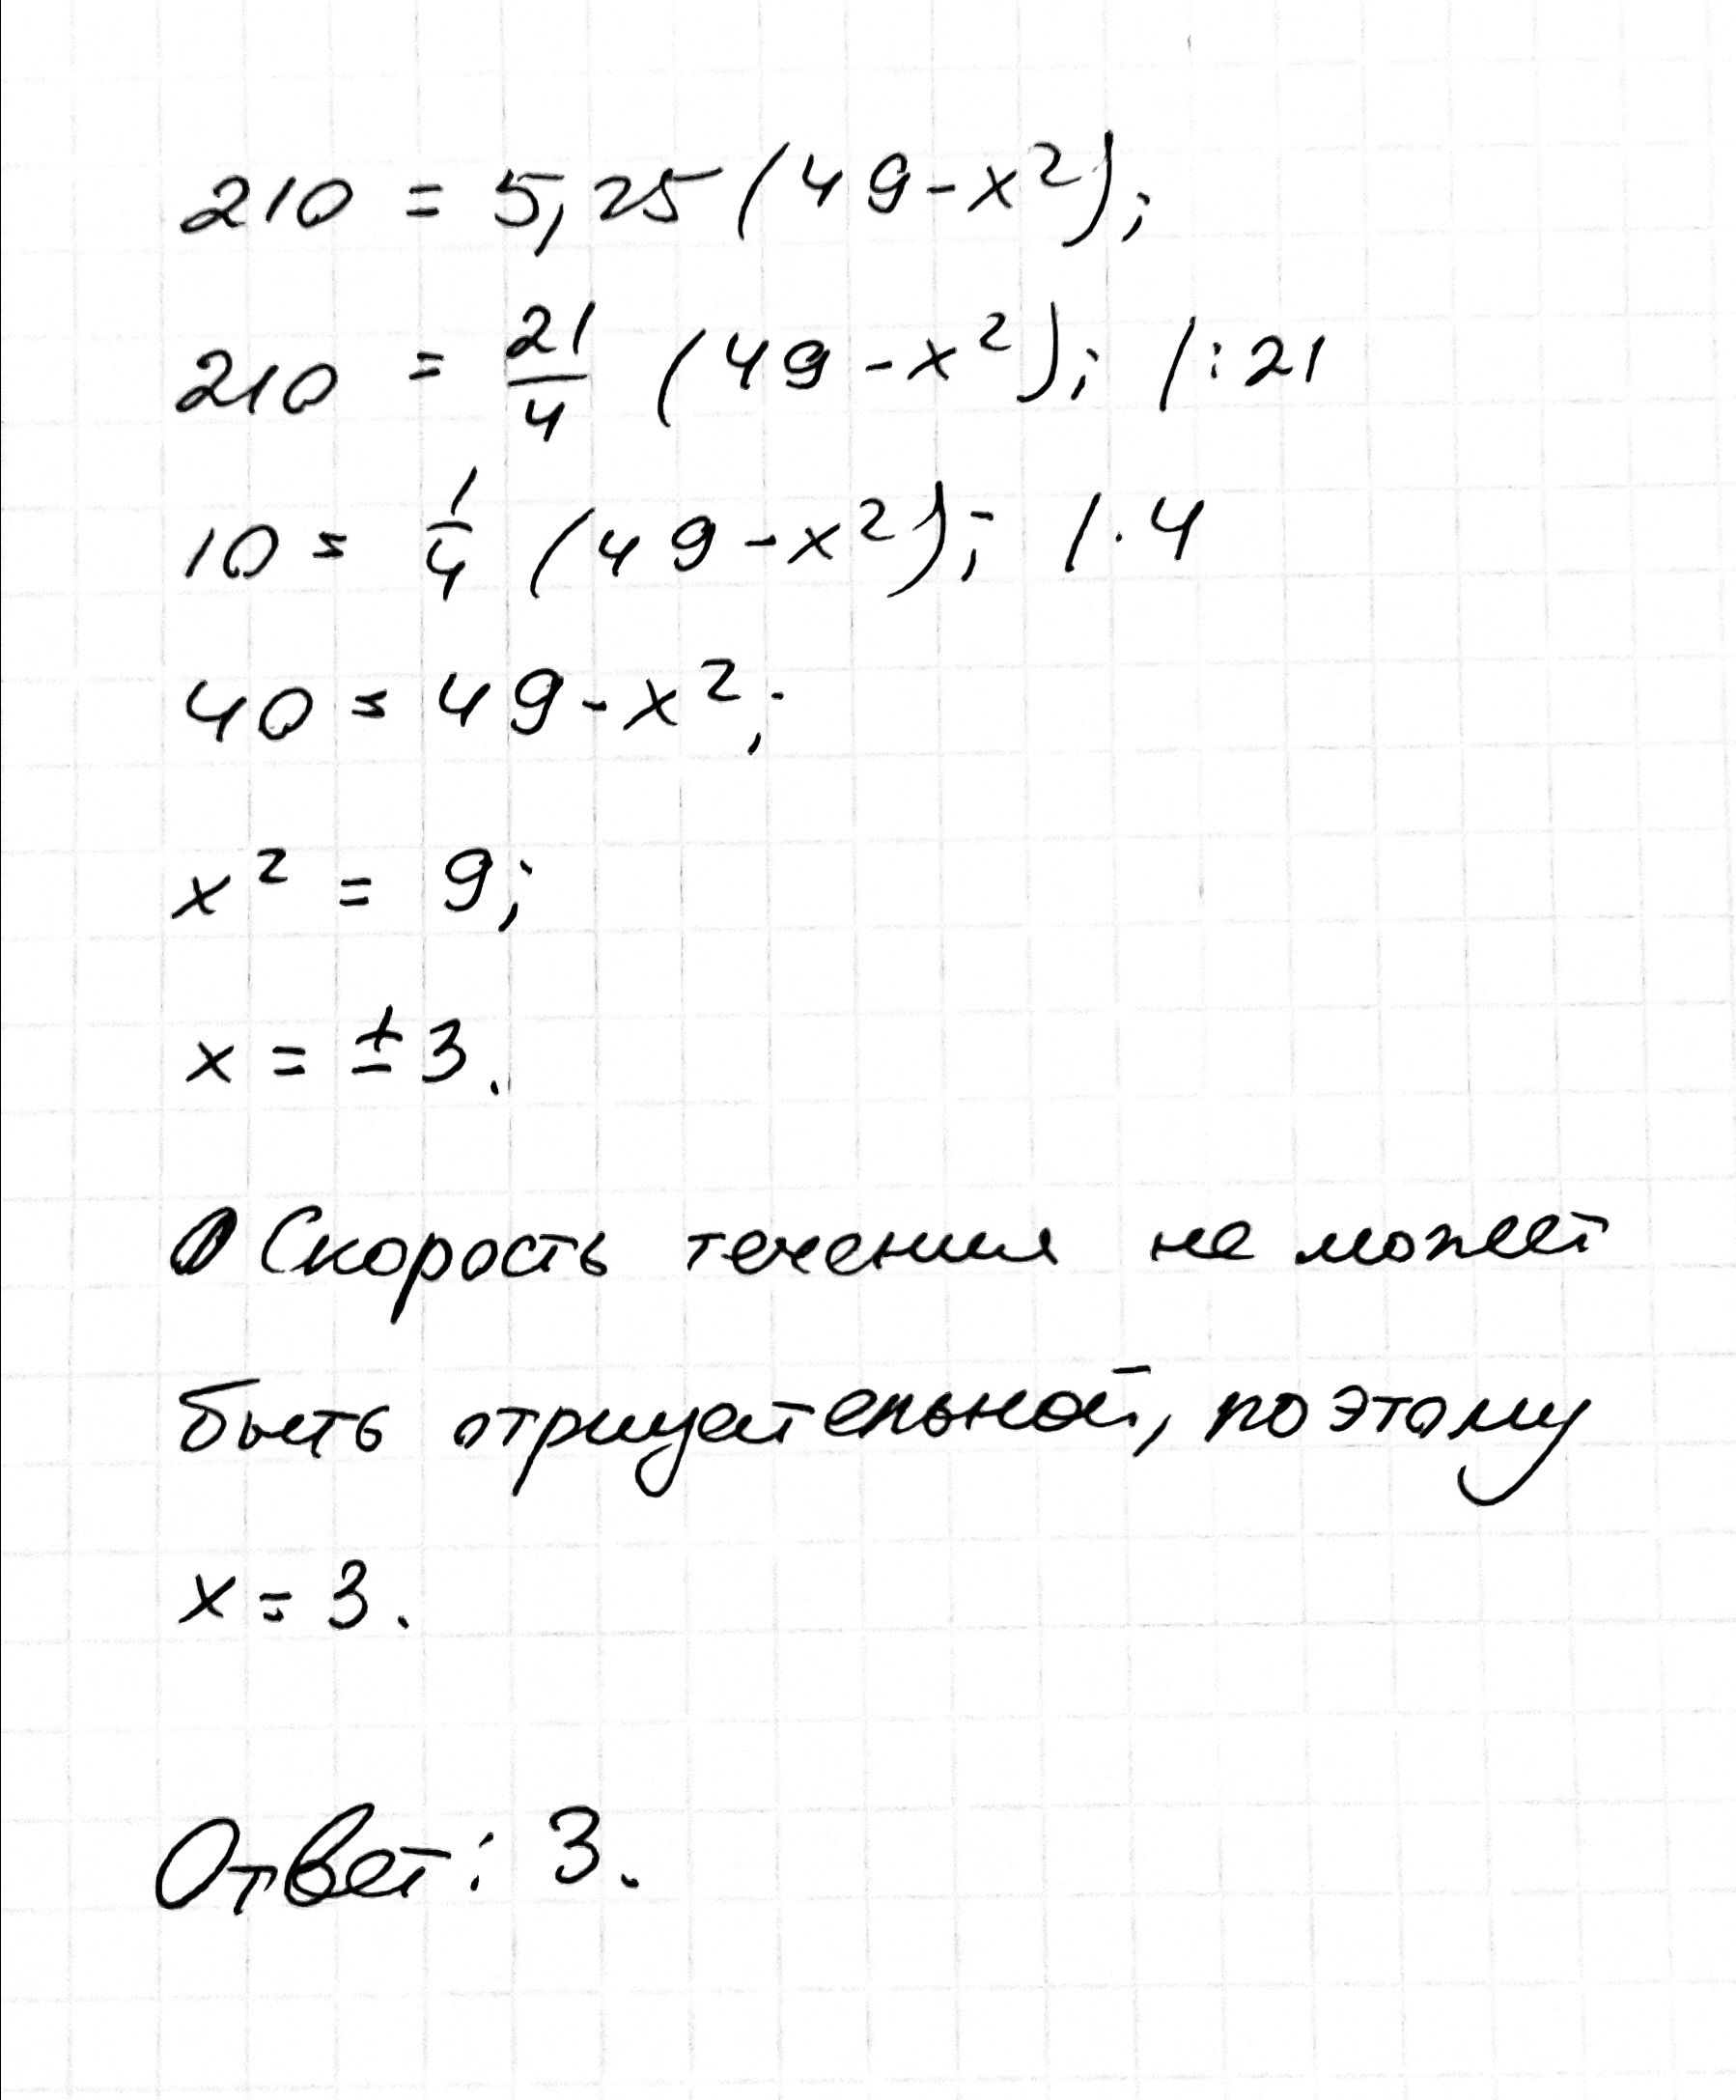 210 = 5,25 (49 - x²);
210 = 21/4 (49 - x²); /:21
10 = 1/4 (49 - x²); /·4
40 = 49 - x²;
x² = 9;
x = ±3.
Скорость течения не может
быть отрицательной, поэтому
x = 3.
Ответ: 3.